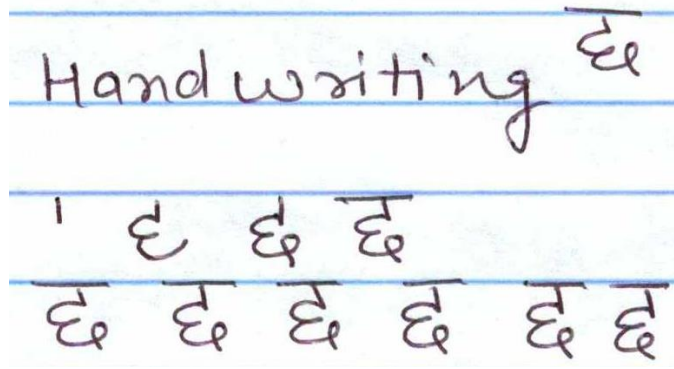 Handwriting छ
छ
छ छ छ छ छ छ